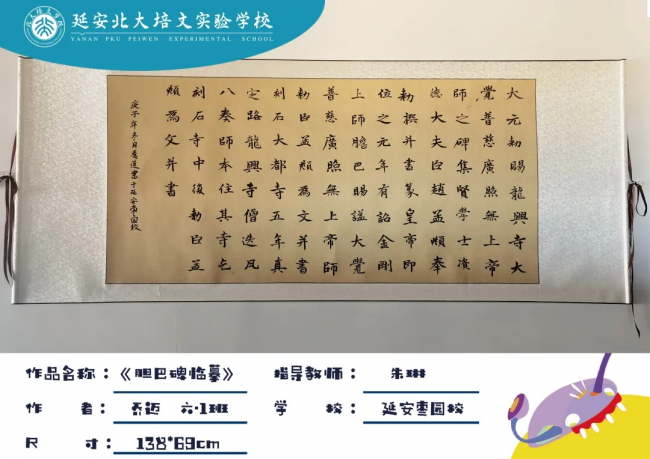 延安北大培文实验学校
YANAN PKU PEIWEN EXPERIMENTAL SCHOOL
大元勅賜龍興寺大
覺普慈廣照無上帝
師之碑集賢學士資
德大夫臣趙孟頫奉
勅撰并書篆皇帝即
位之元年有詔金剛
上師膽巴賜謚大覺
普慈廣照無上帝師
勅臣孟頫爲文并書
刻石大都寺五年真
定路龍興寺僧迭凡
八奏師本住其寺乞
刻石寺中復勅臣孟
頫爲文并書
庚子年冬月喬邁書于延安棗园校
作品名称：《胆巴碑临摹》
指导教师：朱琳
作者：乔迈 六·1班
学校：延安枣园校
尺寸：138*69cm